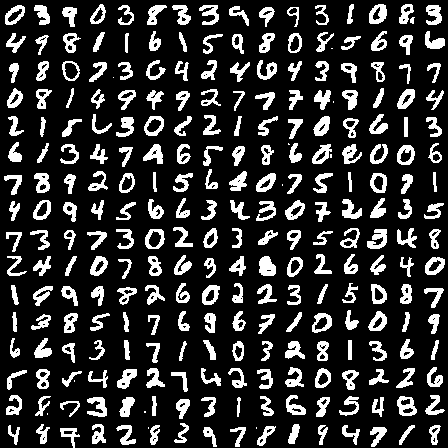 0 3 9 0 3 8 3 3 9 9 9 3 1 0 8 3
4 9 8 1 1 6 1 5 9 8 0 8 5 6 9 6
9 8 0 7 3 0 4 2 4 6 4 3 9 8 7 7
0 8 1 4 9 4 9 2 7 7 7 4 8 1 0 4
2 1 5 6 3 0 2 2 1 5 7 0 8 6 1 3
6 1 3 4 7 4 6 5 9 8 6 0 0 0 6
7 8 9 2 0 1 5 6 4 0 7 5 1 0 9 1
4 0 9 4 5 6 6 3 4 3 0 7 2 6 3 5
7 3 9 7 3 0 2 0 3 8 9 5 2 3 4 8
2 4 1 0 7 8 6 9 4 8 0 2 6 6 4 0
1 9 9 9 8 2 6 0 2 2 3 1 5 0 8 7
1 3 8 5 1 7 6 9 6 7 1 0 6 0 1 9
6 6 9 3 1 7 1 1 0 3 2 8 1 3 6 1
5 8 4 8 2 7 4 2 3 2 0 8 2 2 6
2 8 7 3 8 1 9 3 1 3 6 8 5 4 8 2
4 8 7 2 2 8 3 9 7 8 1 8 4 7 1 8